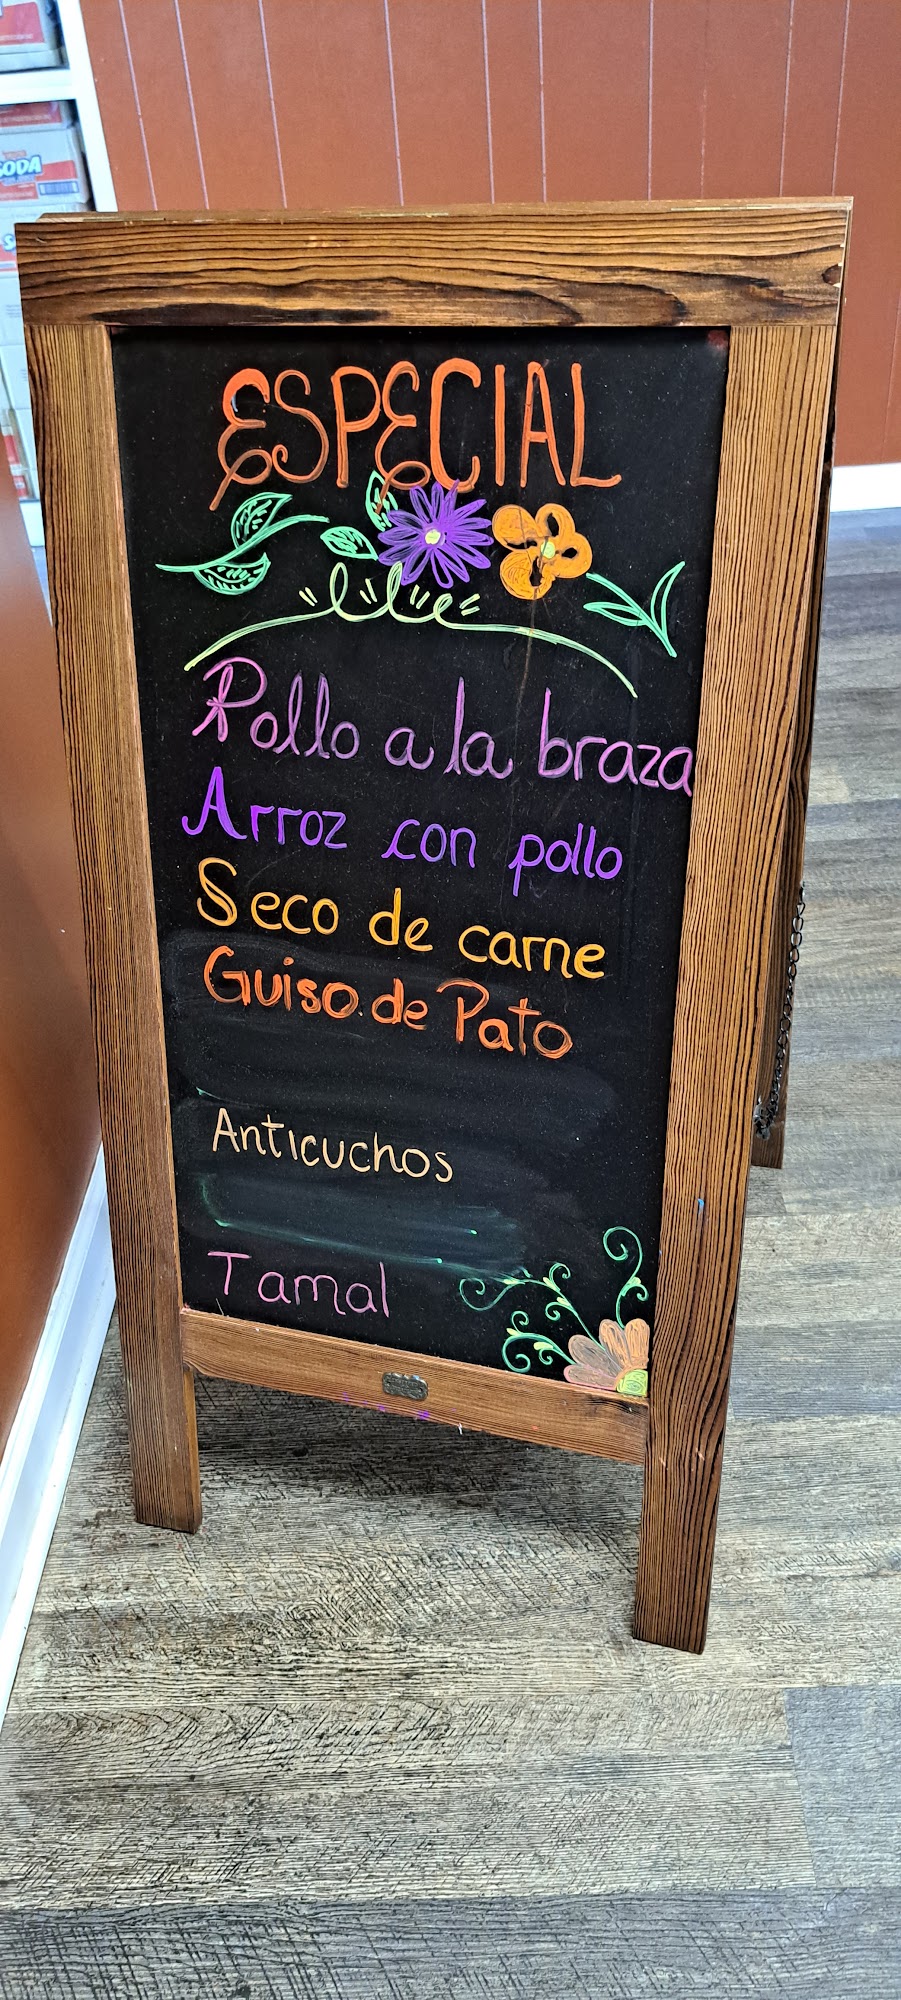 SODA
ESPECIAL
Pollo a la braza
Arroz con pollo
Seco de carne
Guiso de Pato
Anticuchos
Tamal